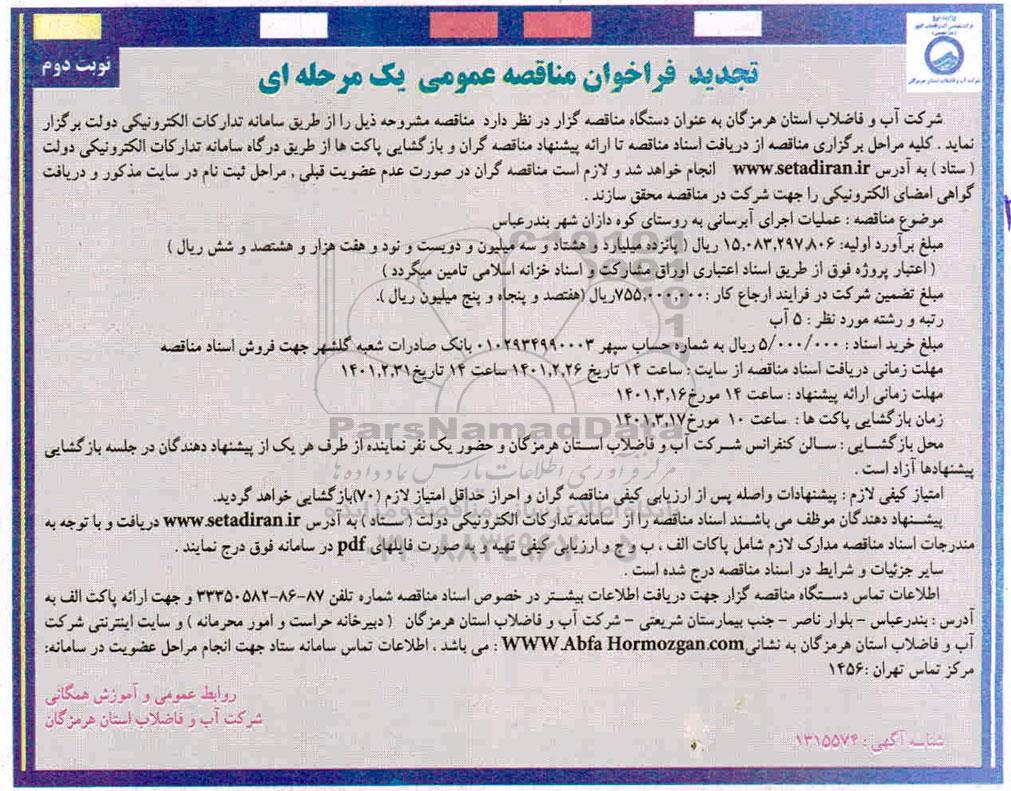 وزارت نیرو
نوبت دوم
شرکت آب و فاضلاب استان هرمزگان
تجدید فراخوان مناقصه عمومی یک مرحله ای
شرکت آب و فاضلاب استان هرمزگان به عنوان دستگاه مناقصه گزار در نظر دارد مناقصه مشروحه ذیل را از طریق سامانه تدارکات الکترونیکی دولت برگزار
نماید . کلیه مراحل برگزاری مناقصه از دریافت اسناد مناقصه تا ارائه پیشنهاد مناقصه گران و بازگشایی پاکت ها از طریق درگاه سامانه تدارکات الکترونیکی دولت
( ستاد ) به آدرس www.setadiran.ir انجام خواهد شد و لازم است مناقصه گران در صورت عدم عضویت قبلی , مراحل ثبت نام در سایت مذکور و دریافت
گواهی امضای الکترونیکی را جهت شرکت در مناقصه محقق سازند .
موضوع مناقصه : عملیات اجرای آبرسانی به روستای کوه دازان شهر بندرعباس
مبلغ برآورد اولیه: ۱۵,۰۸۳,۲۹۷,۸۰۶ ریال ( پانزده میلیارد و هشتاد و سه میلیون و دویست و نود و هفت هزار و هشتصد و شش ریال )
( اعتبار پروژه فوق از طریق اسناد اعتباری اوراق مشارکت و اسناد خزانه اسلامی تامین میگردد )
مبلغ تضمین شرکت در فرایند ارجاع کار :۷۵۵,۰۰۰,۰۰۰ریال (هفتصد و پنجاه و پنج میلیون ریال ).
رتبه و رشته مورد نظر : ۵ آب
مبلغ خرید اسناد : ۵/۰۰۰/۰۰۰ ریال به شماره حساب سپهر ۰۱۰۲۹۳۴۹۹۰۰۰۳ بانک صادرات شعبه گلشهر جهت فروش اسناد مناقصه
مهلت زمانی دریافت اسناد مناقصه از سایت : ساعت ۱۴ تاریخ ۱۴۰۱,۲,۲۶ ساعت ۱۴ تاریخ۱۴۰۱,۲,۳۱
مهلت زمانی ارائه پیشنهاد : ساعت ۱۴ مورخ۱۴۰۱,۳,۱۶
زمان بازگشایی پاکت ها : ساعت ۱۰ مورخ۱۴۰۱,۳,۱۷
محل بازگشایی : سالن کنفرانس شرکت آب و فاضلاب استان هرمزگان و حضور یک نفر نماینده از طرف هر یک از پیشنهاد دهندگان در جلسه بازگشایی
پیشنهادها آزاد است .
امتیاز کیفی لازم : پیشنهادات واصله پس از ارزیابی کیفی مناقصه گران و احراز حداقل امتیاز لازم (۷۰)بازگشایی خواهد گردید.
پیشنهاد دهندگان موظف می باشند اسناد مناقصه را از سامانه تدارکات الکترونیکی دولت ( ستاد ) به آدرس www.setadiran.ir دریافت و با توجه به
مندرجات اسناد مناقصه مدارک لازم شامل پاکات الف ، ب و ج و ارزیابی کیفی تهیه و به صورت فایلهای pdf در سامانه فوق درج نمایند .
سایر جزئیات و شرایط در اسناد مناقصه درج شده است .
اطلاعات تماس دستگاه مناقصه گزار جهت دریافت اطلاعات بیشتر در خصوص اسناد مناقصه شماره تلفن ۸۷-۸۶-۳۳۳۵۰۵۸۲ و جهت ارائه پاکت الف به
آدرس : بندرعباس - بلوار ناصر - جنب بیمارستان شریعتی - شرکت آب و فاضلاب استان هرمزگان ( دبیرخانه حراست و امور محرمانه ) و سایت اینترنتی شرکت
آب و فاضلاب استان هرمزگان به نشانیWWW.Abfa Hormozgan.com : می باشد ، اطلاعات تماس سامانه ستاد جهت انجام مراحل عضویت در سامانه:
مرکز تماس تهران :۱۴۵۶
روابط عمومی و آموزش همگانی
شرکت آب و فاضلاب استان هرمزگان
شناسه آگهی : ۱۳۱۵۵۷۴
ParsNamadData
مرکز فرآوری اطلاعات پارس نماد داده ها
۰۲۱-۸۸۳۴۹۶۷۰-۵